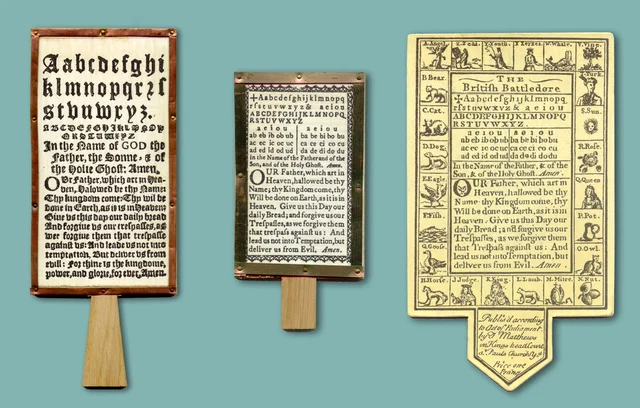 Aabcdefghi
klmnopqrſ
stvuwxyz.
In the Name of GOD the
Father, the Sonne, & of
the Holie Ghost: Amen.
OUr Father, which art in Hea-
ven, Halowed be thy Name:
Thy kingdom come: Thy wil be
done in Earth, as it is in Heaven:
Giue vs this day our daily bread
And forgiue vs our trespasses, as
we forgiue them that trespasse
against vs: And leade vs not into
temptation. But deliver vs from
evill: For thine is the kingdome,
power, and glorie, for ever, Amen.
✢Aabcdefghijklmnopq
rſstuvwxyz & a e i o u
ABCDEFGHIJKLMNOPQ
RSTUVWXYZ
a e i o u a e i o u
ab eb ib ob ub ba be bi bo bu
ac ec ic oc uc ca ce ci co cu
ad ed id od ud da de di do du
In the Name of the Father and of the
Son, and of the Holy Ghost. Amen.
OUR Father, which art in
Heaven, hallowed be thy
Name; thy Kingdom come, thy
Will be done on Earth, as it is in
Heaven. Give us this Day our
daily Bread; and forgive us our
Trespasses, as we forgive them
that trespass against us: And
lead us not into Temptation, but
deliver us from Evil. Amen.
A. Angel.
Y. Youth.
X Xerxes.
W. Whale.
V. Vine.
B Bear.
T. Turk.
C. Cat.
S. Sun.
D. Dog.
R. Rose.
E. Eagle.
Q. Queen
F. Fish.
P. Pot.
G. Goose.
O. Owl.
H. Horse.
J. Judge.
K. King.
L. Lamb.
M. Mitre.
N. Nut.
The
British Battledore
✢Aabcdefghijklmnopq
rſstuvwxyz & a e i o u
ABCDEFGHIJKLMNOPQ
RSTUVWXYZ
a e i o u a e i o u
ab eb ib ob ub ba be bi bo bu
ac ec ic oc uc ca ce ci co cu
ad ed id od ud da de di do du
In the Name of the Father, & of the
Son, & of the Holy Ghost. Amen
OUR Father, which art in
Heaven, hallowed be thy
Name thy Kingdom come, thy
Will be done on Earth, as it is in
Heaven. Give us This Day our
daily Bread; and forgive us our
Trespasses, as we forgive them
that Trespass against us: And
lead us not into Temptation, but
deliver us from Evil. Amen
Publish'd according
to Act of Parliament
by T Matthews
in Kings head Court
St. Pauls Church Yd.
Price one
Penny